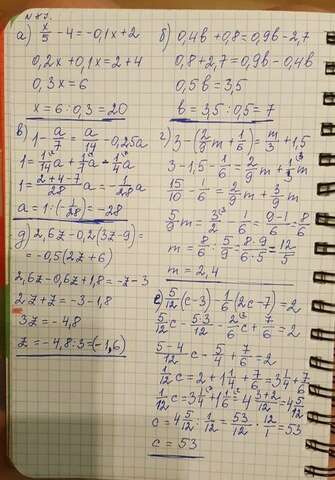 а) x/5 - 4 = -0,1x + 2
0,2x + 0,1x = 2 + 4
0,3x = 6
x = 6 : 0,3 = 20
б) 0,4в + 0,8 = 0,9в - 2,7
0,8 + 2,7 = 0,9в - 0,4в
0,5в = 3,5
в = 3,5 : 0,5 = 7
в) 1 - a/7 = a/14 - 0,25a
1 = 1/14 a + 1/7 a - 1/4 a
1 = (2 + 4 - 7)/28 a = -1/28 a
a = 1 : (-1/28) = -28
г) 3 - (2/9 m + 1/6) = m/3 + 1,5
3 - 1,5 - 1/6 = 2/9 m + 1/3 m
15/10 - 1/6 = 2/9 m + 3/9 m
5/9 m = 3/2 - 1/6 = (9 - 1)/6 = 8/6
m = 8/6 : 5/9 = (8·9)/(6·5) = 12/5
m = 2,4
д) 2,6z - 0,2(3z - 9) =
= -0,5(2z + 6)
2,6z - 0,6z + 1,8 = -z - 3
2z + z = -3 - 1,8
3z = -4,8
z = -4,8 : 3 = (-1,6)
е) 5/12 (c - 3) - 1/6 (2c - 7) = 2
5/12 c - (5·3)/12 - 2/6 c + 7/6 = 2
(5 - 4)/12 c - 5/4 + 7/6 = 2
1/12 c = 2 + 1 1/4 - 7/6 = 3 1/4 + 7/6
1/12 c = 3 1/4 + 1 1/6 = 4 (3 + 2)/12 = 4 5/12
c = 4 5/12 : 1/12 = 53/12 · 12/1 = 53
c = 53